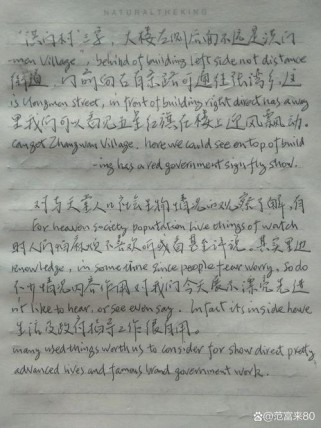 NATURALTHEKING
"洪门村"三字，大楼左侧后面不远是洪门
-men Village", behind of building left side not distance
街道，门前向右有条路可通往张湾乡，这
is Hongmen street, in front of building right direct has a way
里我们可以看见五星红旗在楼上迎风飘动。
can get Zhangwan Village. here we could see on top of build
-ing has a red government sign fly show.
对与天堂人口社会生活情况的观察了解，有
For heaven society population live things of watch
时人们怕麻烦不喜欢听或自甚至评说。其实里边
knowledge, in some time since people fear worry, so do
很多情况内容作用对我们今天展示漂亮先进
n't like to hear, or see even say. In fact its inside have
生活及政府指导工作很有用。
many used things worth us to consider for show direct pretty
advanced lives and famous brand government work.
@范富来80